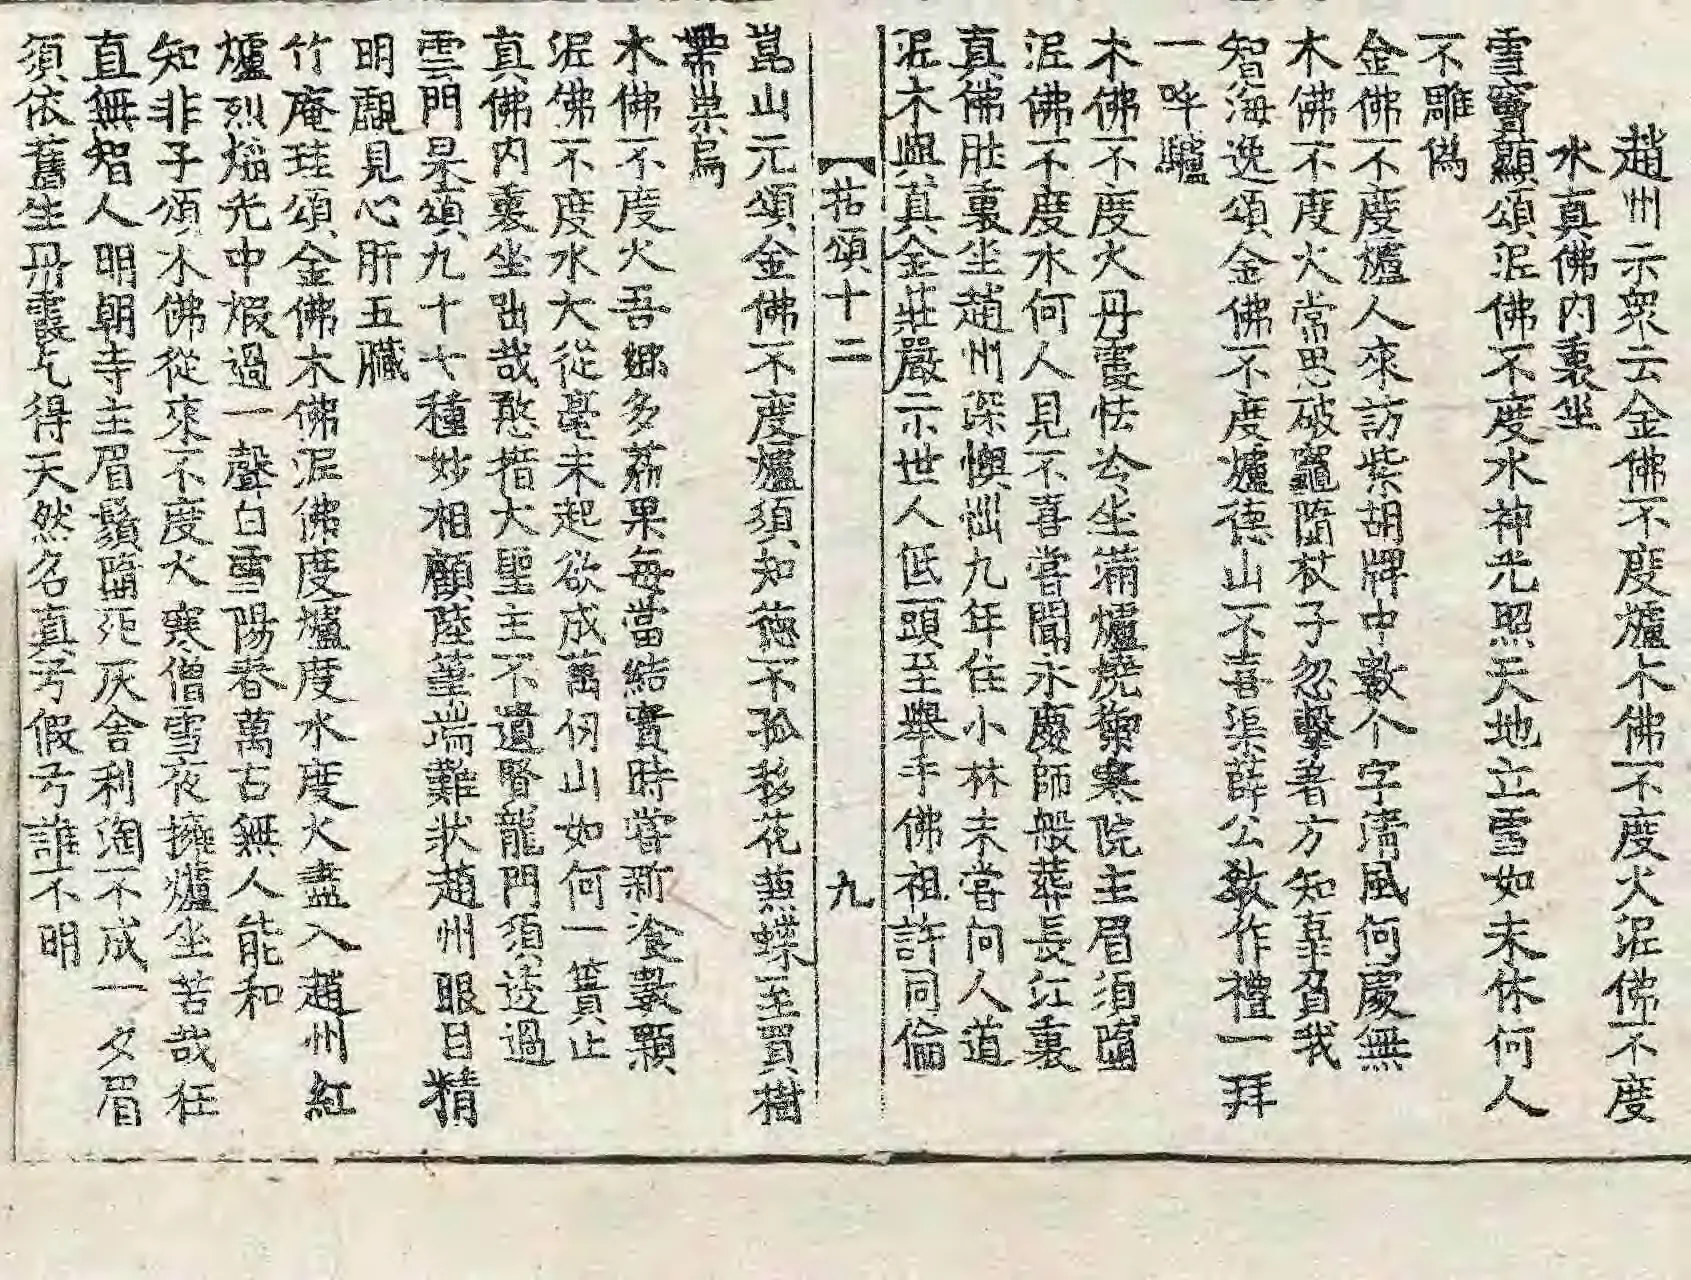 趙州示衆云金佛不度爐木佛不度火泥佛不度
水真佛內裏坐
雪竇顯頌泥佛不度水神光照天地立雪如未休何人
不雕僞
金佛不度爐人來訪紫胡牌中數个字淸風何處無
木佛不度火常思破竈墮杖子忽擊著方知辜負我
智海逸頌金佛不度爐德山不喜渠薛公教作禮一拜
一呼驢
木佛不度火丹霞怯冷坐滿爐燒禦寒院主眉須墮
泥佛不度水何人見不喜嘗聞永慶師般葬長江裏
真佛肚裏坐趙州深懊㤞九年住小林未嘗向人道
泥木與真金莊嚴示世人低頭至舉手佛祖許同倫
拈頌十二 九
崑山元頌金佛不度爐須知德不孤移花蒸蝶至買樹
帶巢烏
木佛不度火吾鄉多荔果每當結實時嘗新飡數顆
泥佛不度水大從毫末起欲成萬仞山如何一簣止
真佛內裏坐咄哉憨措大聖主不遺賢龍門須透過
雲門杲頌九十七種妙相顧陸筆端難狀趙州眼目精
明覷見心肝五臟
竹庵珪頌金佛木佛泥佛度爐度水度火盡入趙州紅
爐烈熖光中煆過一聲白雪陽春萬古無人能和
知非子頌木佛從來不度火寒僧雪夜擁爐坐苦哉枉
直無智人明朝寺主眉鬚墮死灰舍利淘不成一夕眉
須依舊生丹霞乞得天然名真兮假兮誰不明